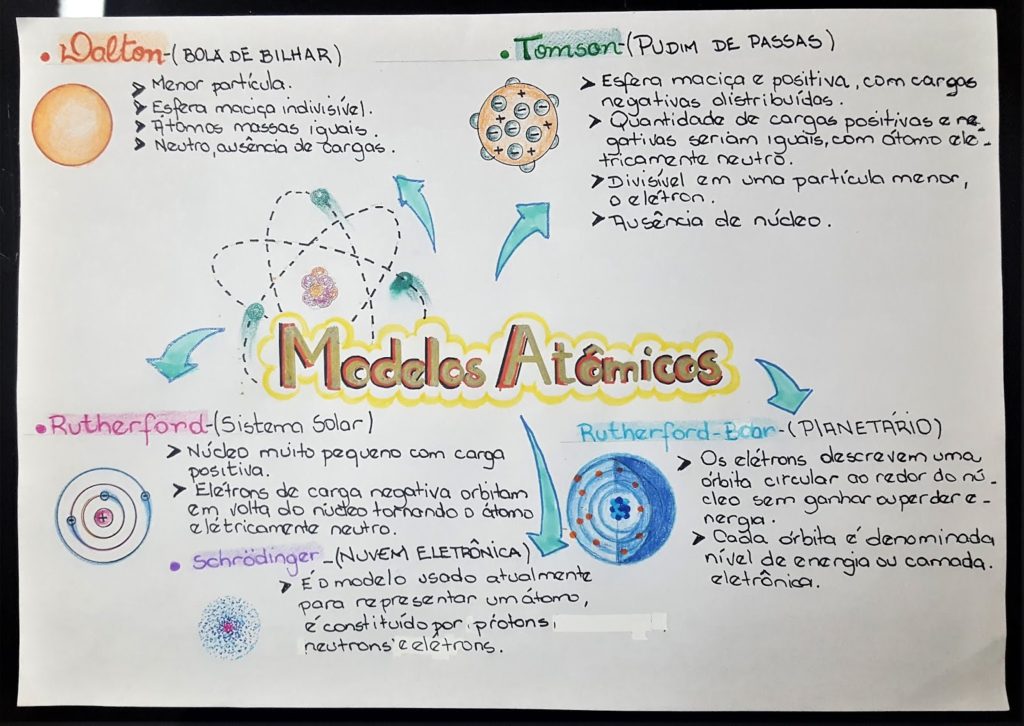 • Dalton-(BOLA DE BILHAR)
➤ Menor partícula.
➤ Esfera maciça indivisível.
➤ Átomos massas iguais.
➤ Neutro, ausência de cargas.
• Tomson-(PUDIM DE PASSAS)
➤ Esfera maciça e positiva, com cargas
negativas distribuídas.
➤ Quantidade de cargas positivas e ne-
gativas seriam iguais, com átomo elé-
tricamente neutro.
➤ Divisível em uma partícula menor,
o elétron.
➤ Ausência de núcleo.
Modelos Atômicos
• Rutherford-(Sistema Solar)
➤ Núcleo muito pequeno com carga
positiva.
➤ Elétrons de carga negativa orbitam
em volta do núcleo tornando o átomo
elétricamente neutro.
Rutherford-Bohr-(PLANETÁRIO)
➤ Os elétrons descrevem uma
órbita circular ao redor do nú-
cleo sem ganhar ou perder e-
nergia.
➤ Cada órbita é denominada
nível de energia ou camada
eletrônica.
• Schrödinger-(NUVEM ELETRÔNICA)
➤ É o modelo usado atualmente
para representar um átomo,
é constituído por prótons,
neutrons e elétrons.